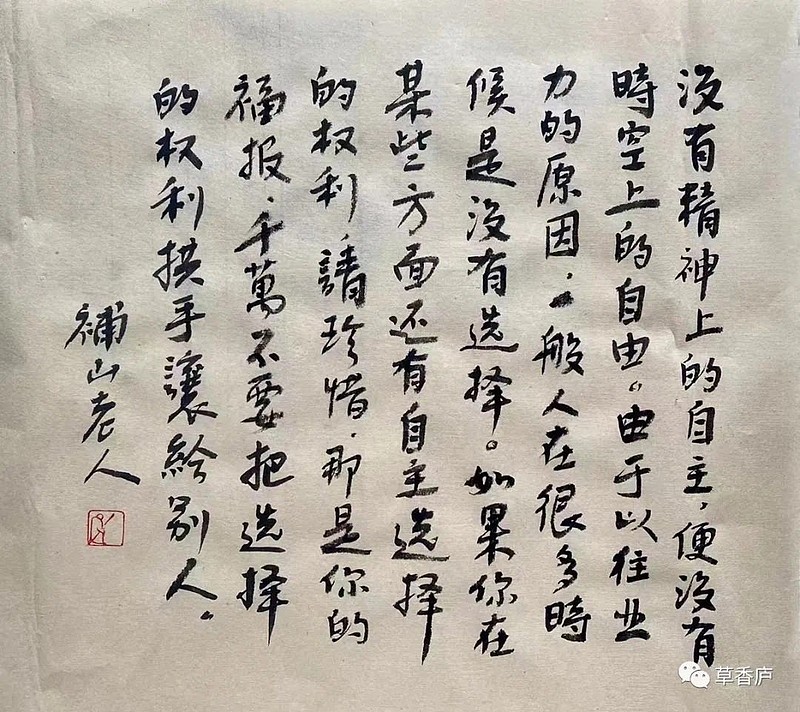 没有精神上的自主，便没有
時空上的自由。由于以往业
力的原因，一般人在很多時
候是没有选择。如果你在
某些方面还有自主选择
的权利，請珍惜，那是你的
福报，千萬不要把选择
的权利拱手讓給别人。
補山老人
草香庐